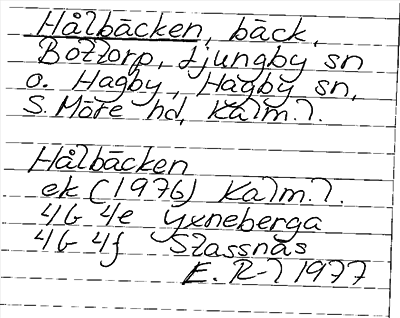 Hålbäcken, bäck,
Bottorp, Ljungby sn
o. Hagby, Hagby sn,
S. Möre hd, Kalm.l.
Hålbäcken
ek (1976) Kalm.l.
4G 4e Yxneberga
4G 4f Slassnäs
E. R-l 1977